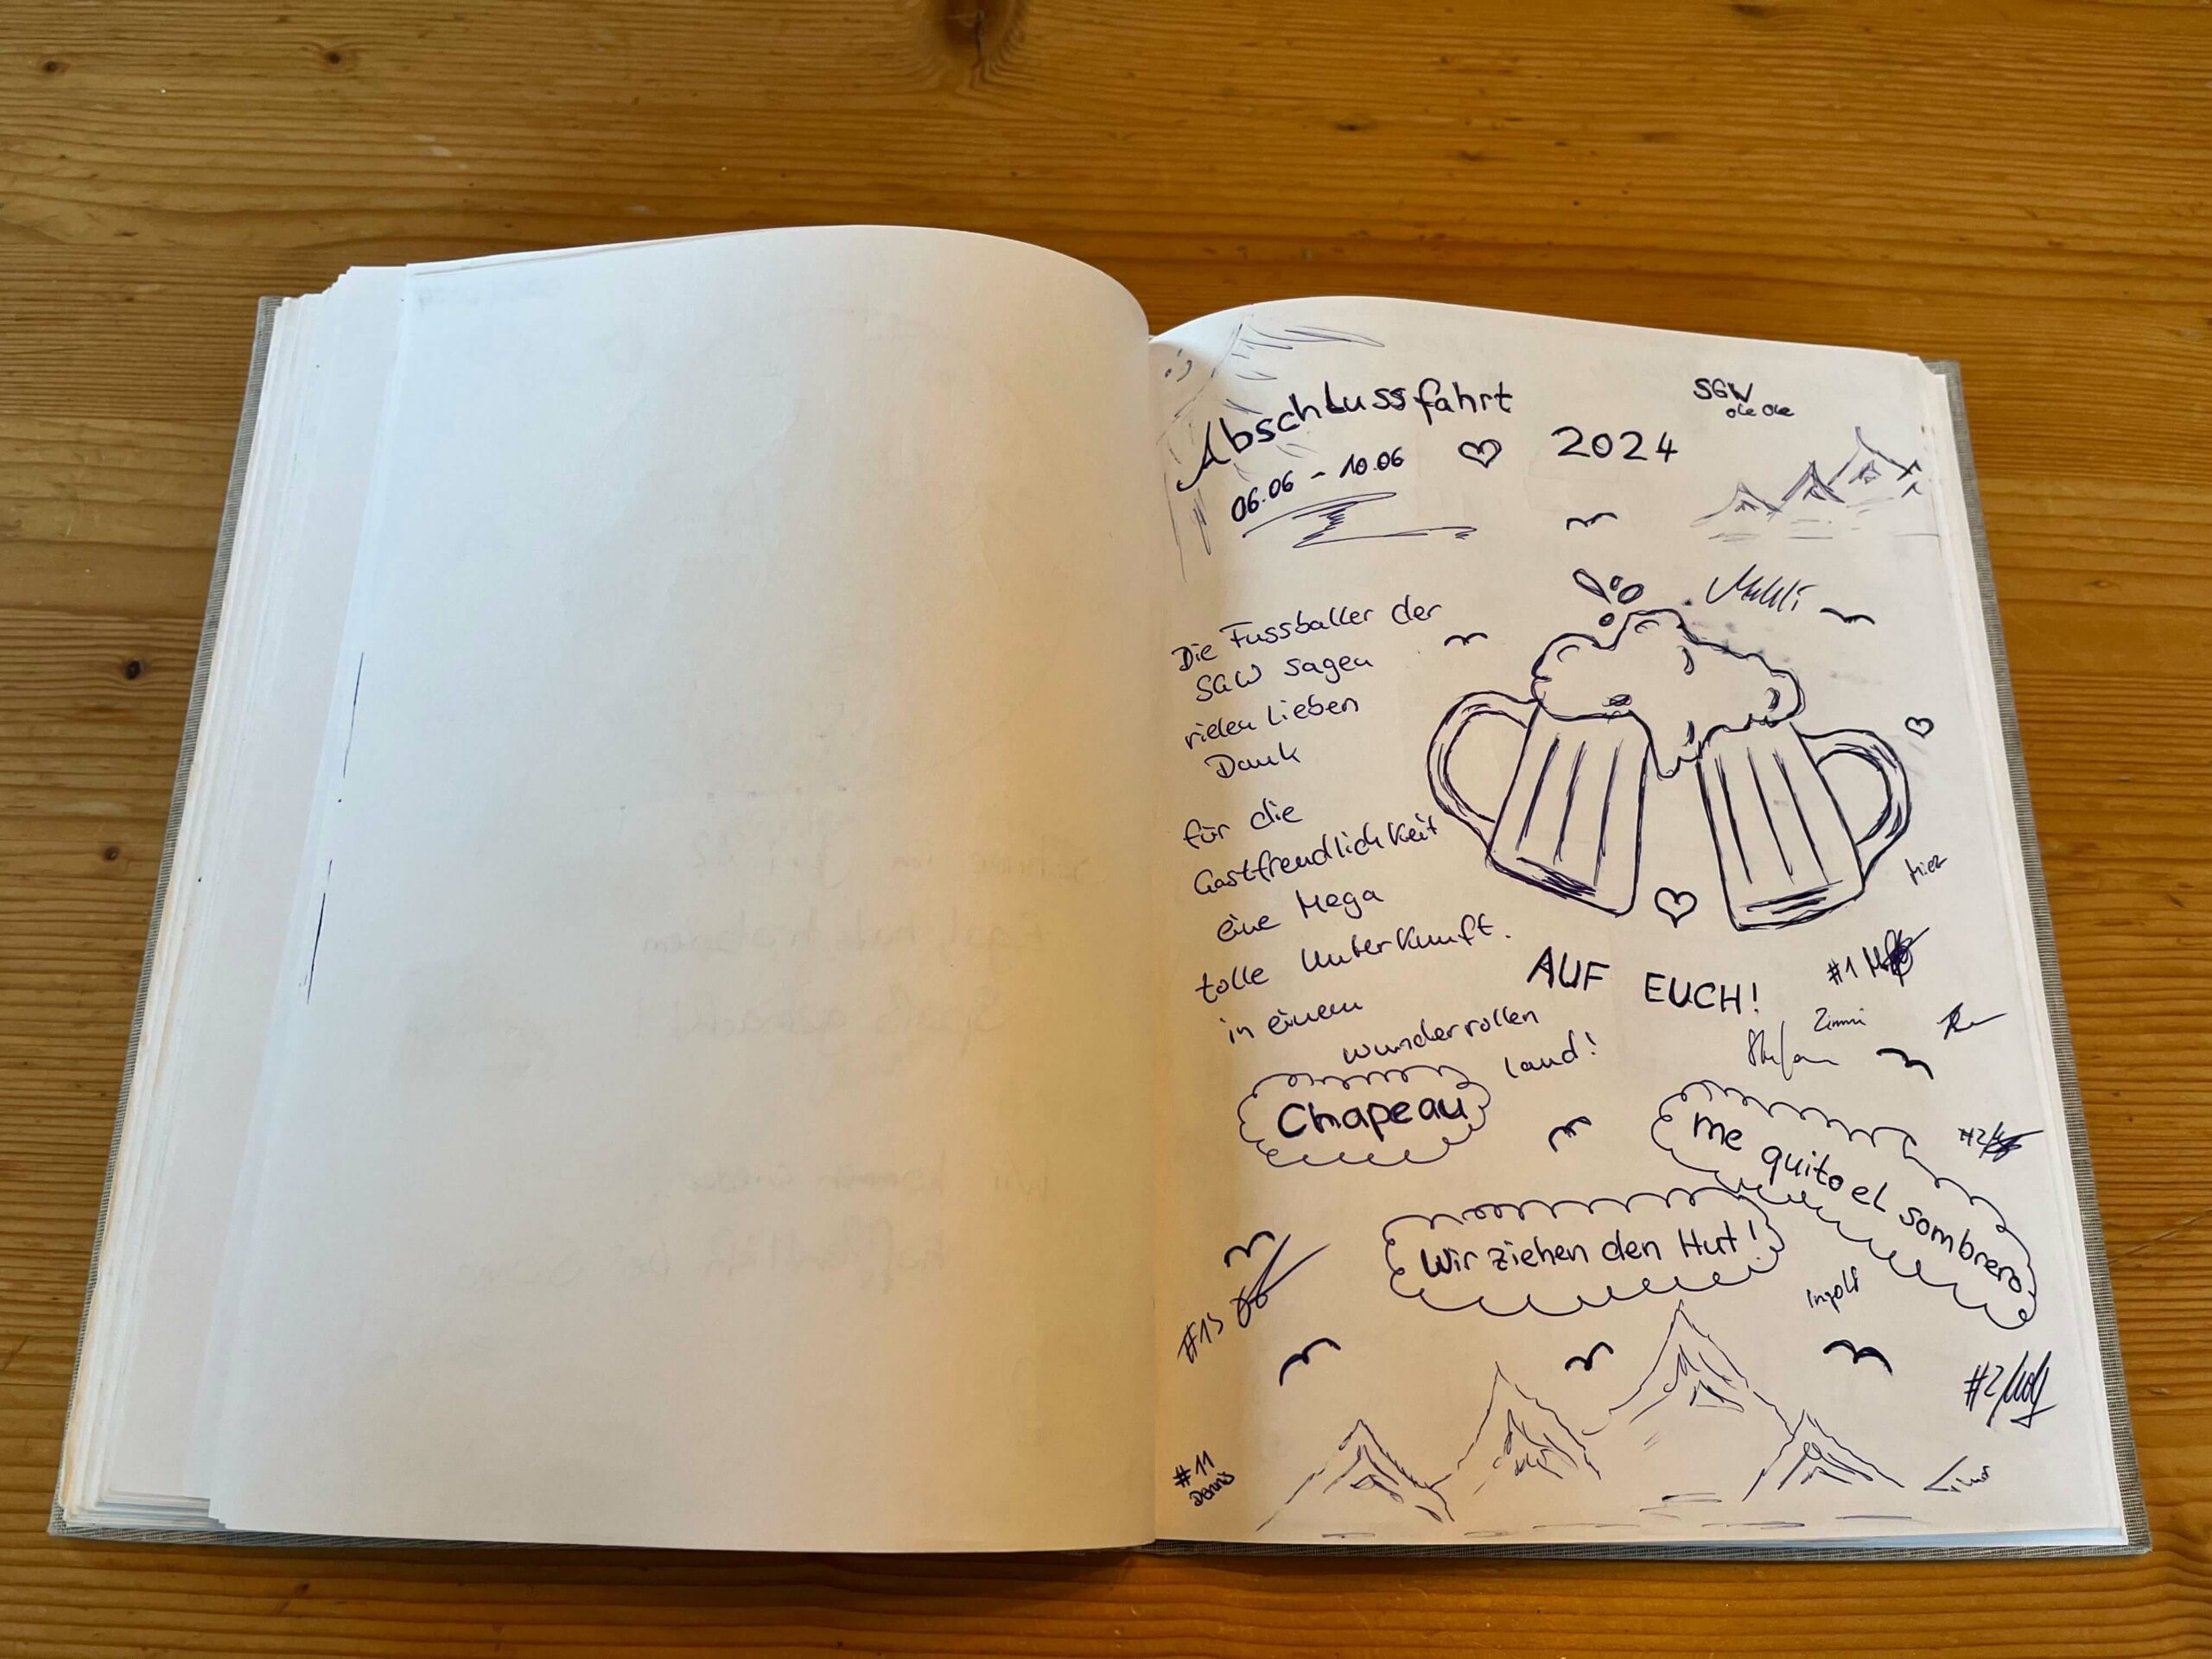 Abschlussfahrt
SGW
ole ole
♡ 2024
06.06 - 10.06
Die Fussballer der
SGW sagen
vielen Lieben
Dank
für die
Gastfreundlichkeit
eine Mega
tolle Unterkunft.
in einem
wundervollen
Land!
AUF EUCH!
#1
Zimmi
Stefan
Chapeau
me quito el sombrero
Wir ziehen den Hut!
Ingolf
#13
#2
#11
Dennis
Timo